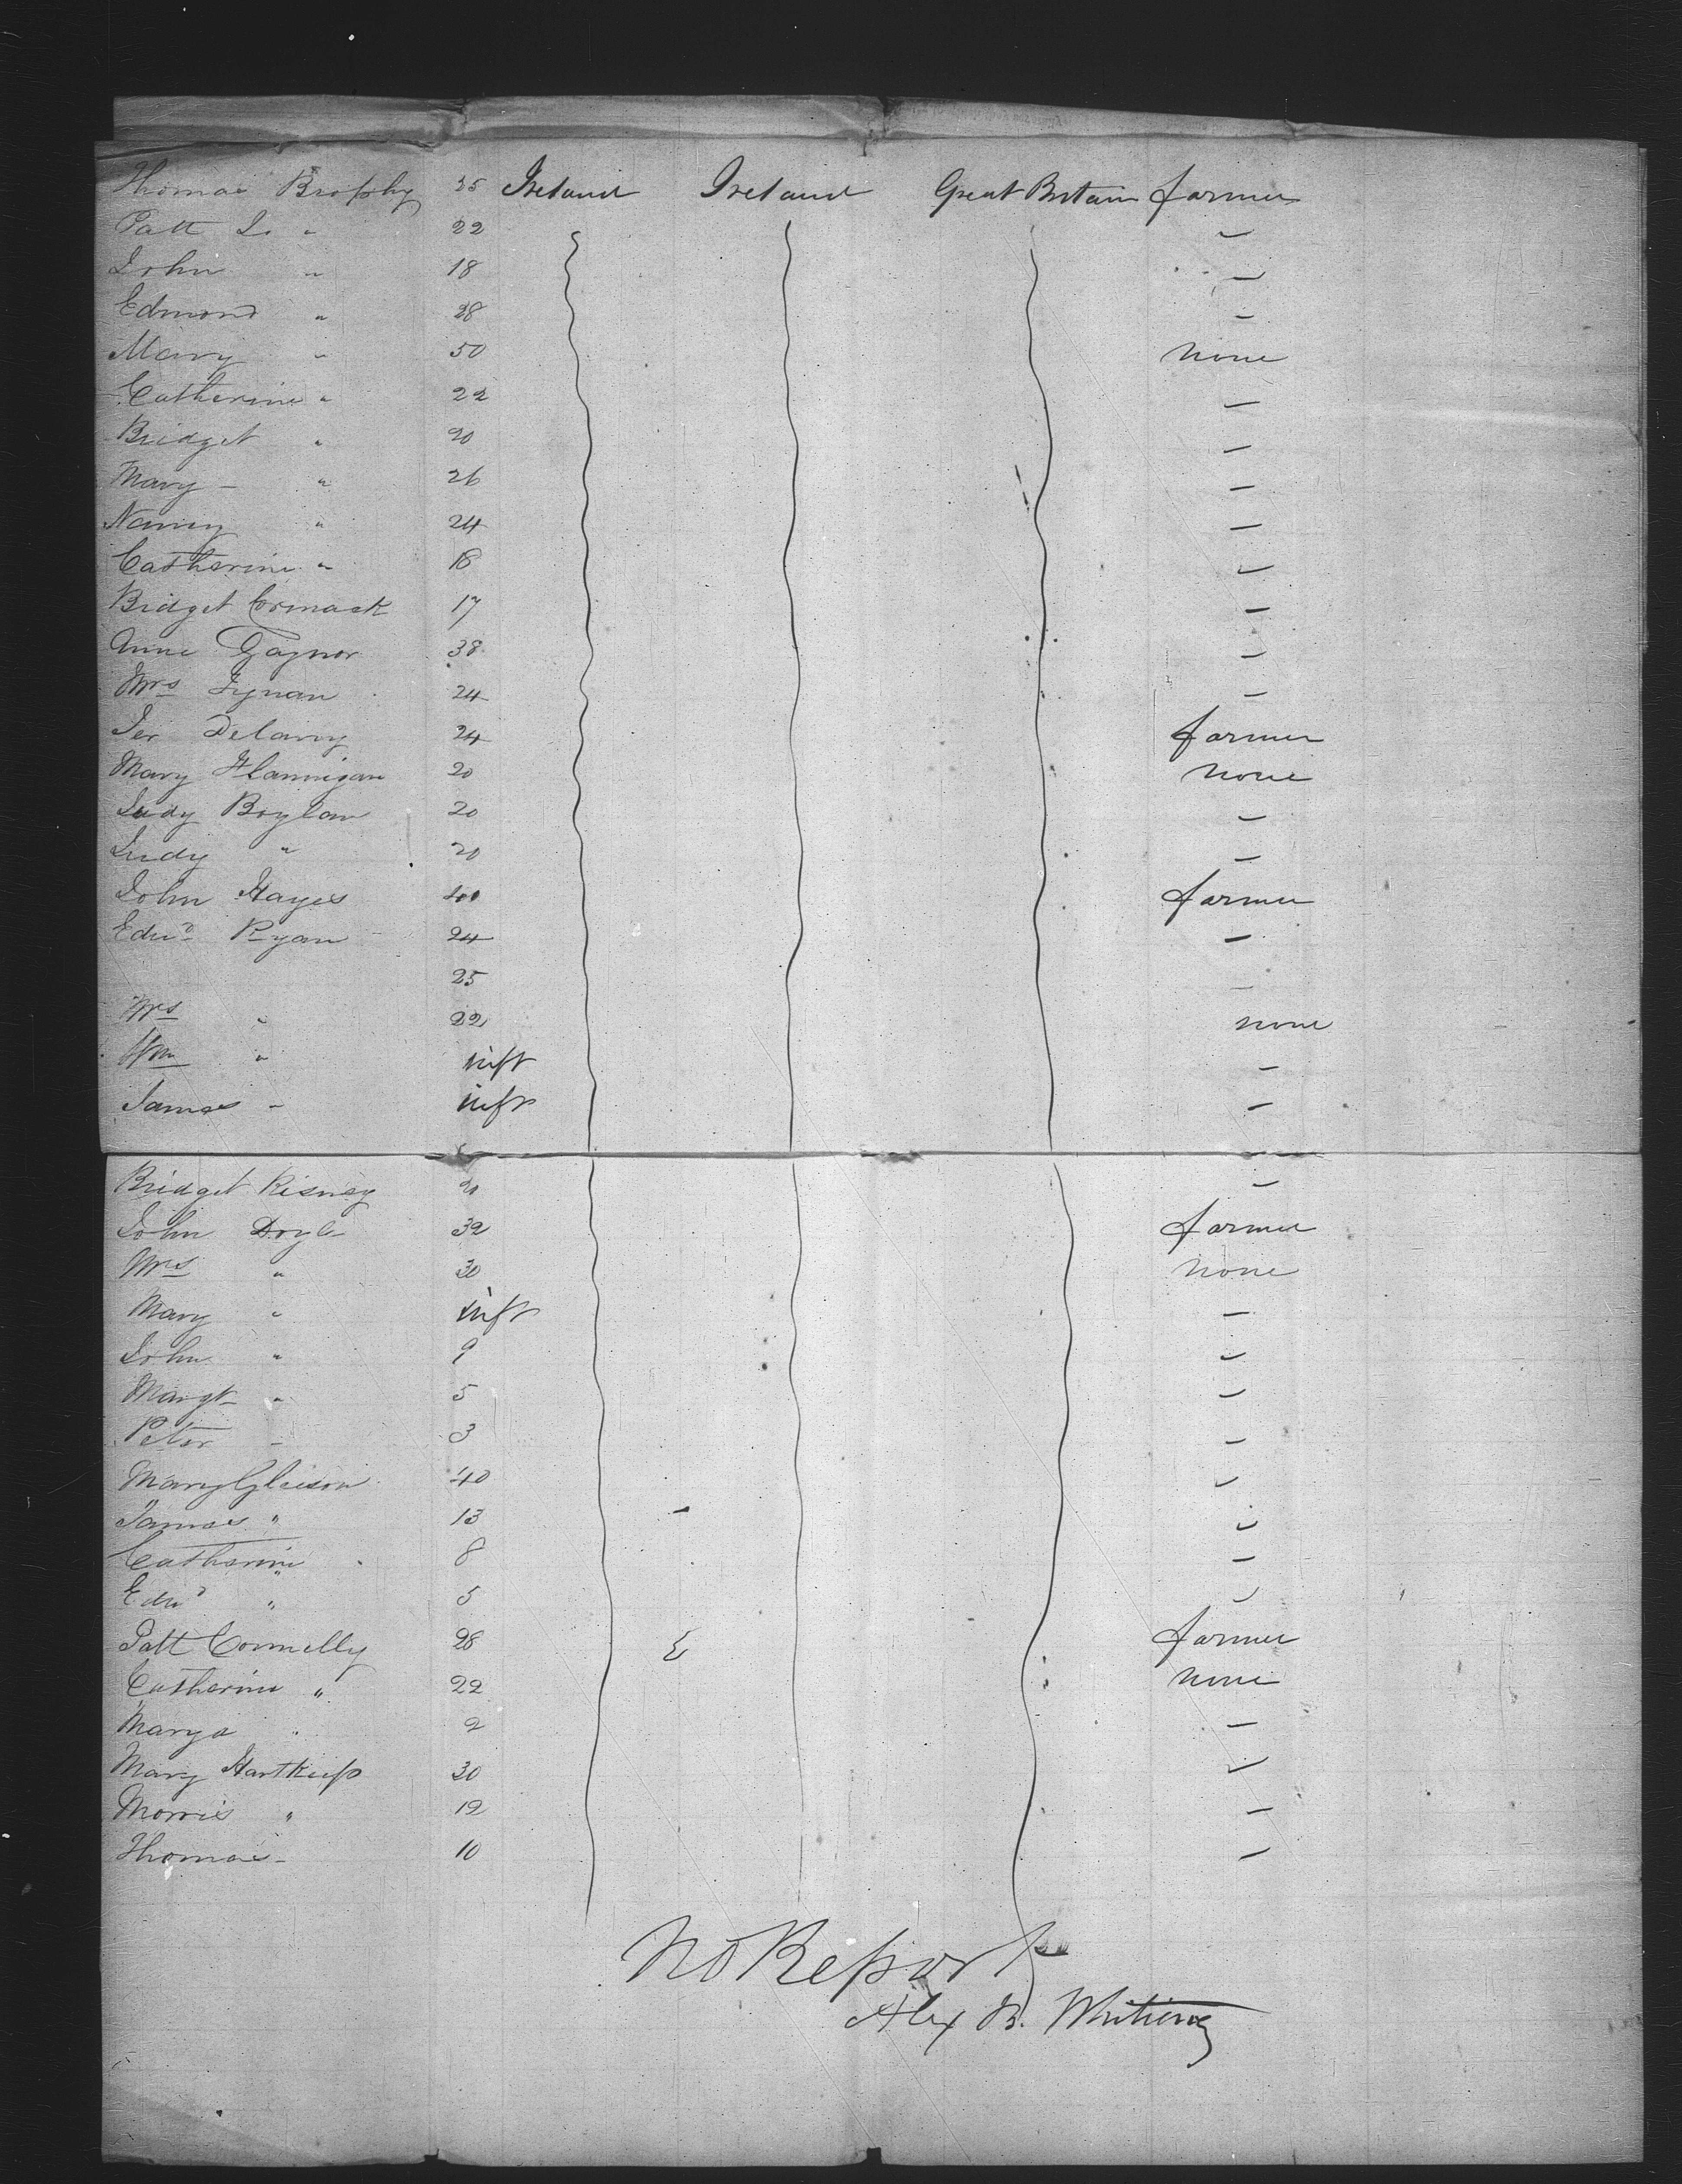 Thomas Brophy 25 Ireland Ireland Great Britain farmer
Patt J. " 22 "
John " 18 "
Edmond " 28 "
Mary " 50 none
Catherine " 22 "
Bridget " 20 "
Mary " 26 "
Nancy " 24 "
Catherine " 18 "
Bridget Cormack 17 "
Anne Gaynor 38 "
Mrs Fynan 24 "
Jer Delany 24 farmer
Mary Flannigan 20 none
Judy Boylan 20 "
Judy " 20 "
John Hayes 40 farmer
Edwd Ryan 24 "
25 "
Mrs " 22 none
Wm " inft "
James " inft "
Bridget 20 "
John Doyle 32 farmer
Mrs " 30 none
Mary " inft "
John " 9 "
Margt " 5 "
Peter " 3 "
Mary Gleeson 40 "
James " 13 "
Catherine " 8 "
Edwd " 5 "
Patt Connelly 28 farmer
Catherine " 22 none
Mary a " 2 "
Mary 30 "
Morris " 12 "
Thomas " 10 "
No Report
Alex B. Whiting